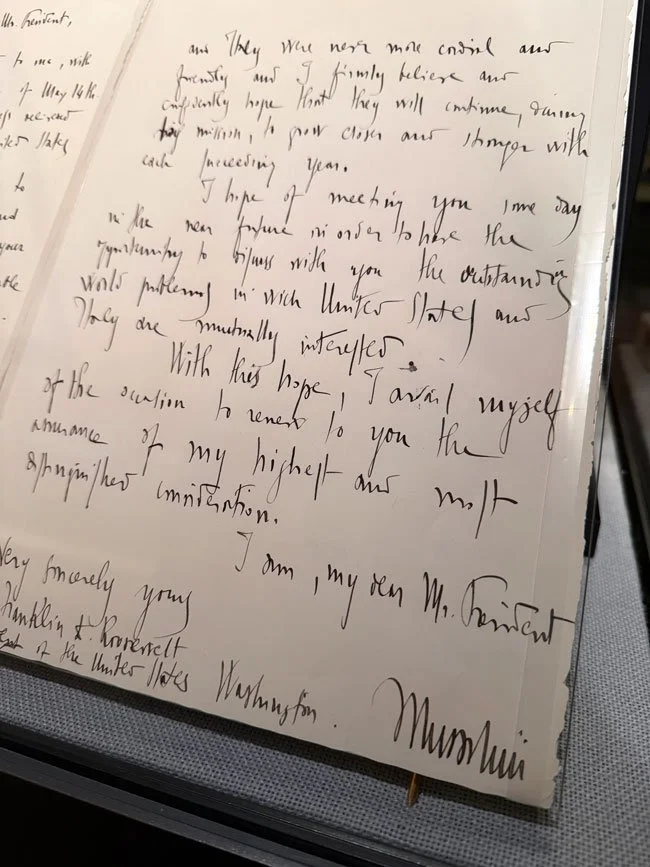 Mr. President,
to me, with
of May 14th
received
United States
to
and
your
and they were never more cordial and
friendly and I firmly believe and
confidently hope that they will continue, during
his mission, to grow closer and stronger with
each succeeding year.
I hope of meeting you some day
in the near future in order to have the
opportunity to discuss with you the outstanding
world problems in wich United States and
Italy are mutually interested.
With this hope, I avail myself
of the occasion to renew to you the
assurance of my highest and most
distinguished consideration.
I am, my dear Mr. President
Very sincerely yours
Franklin D. Roosevelt
of the United States Washington.
Mussolini